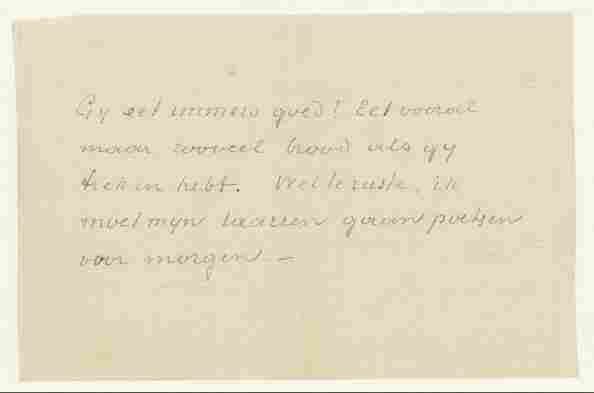 Gy eet immers goed! Eet vooral
maar zooveel brood als gy
trek in hebt. Wel te ruste, ik
moet myn laarzen gaan poetsen
voor morgen. —